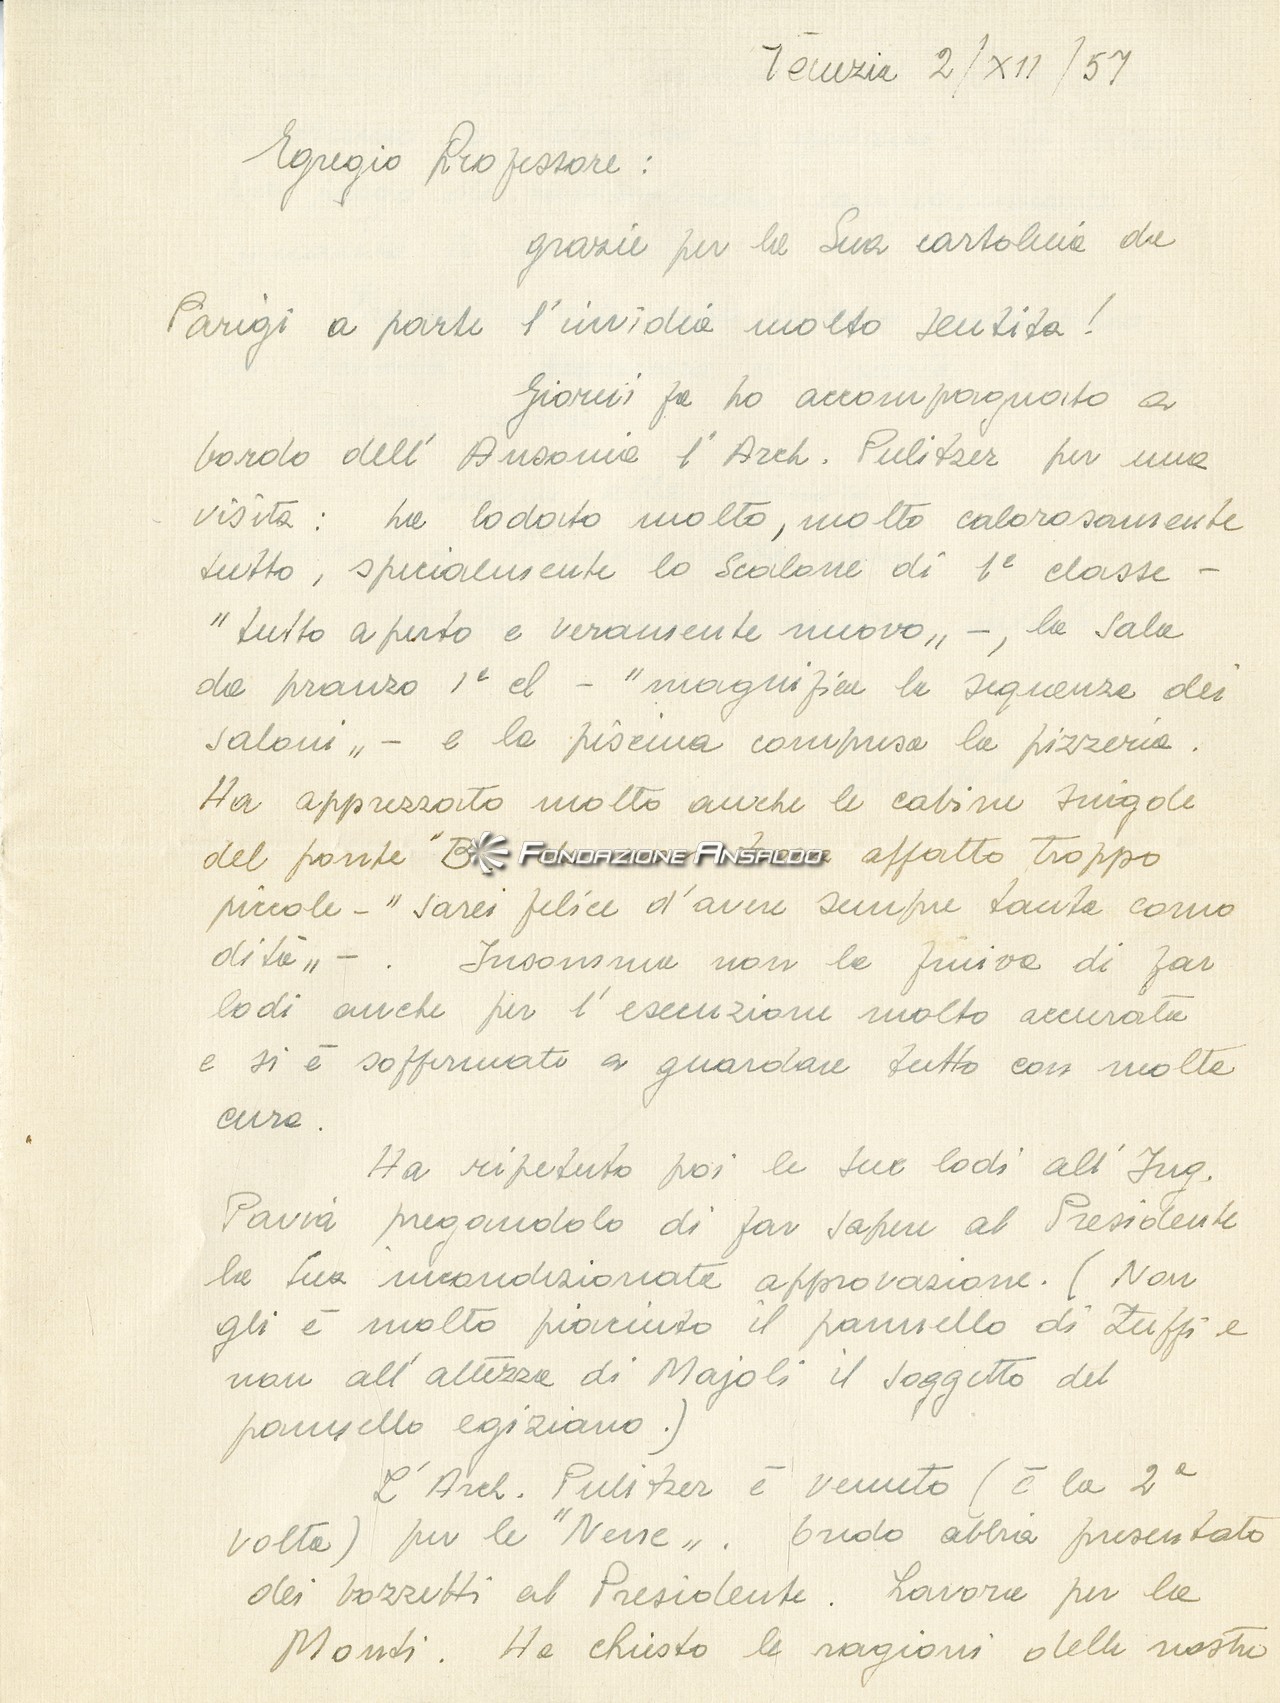 Venezia 2/XII/57
Egregio Professore:
grazie per la Sua cartolina da
Parigi a parte l'invidia molto sentita!
Giorni fa ho accompagnato a
bordo dell'Ausonia l'Arch. Pulitzer per una
visita: ha lodato molto, molto calorosamente
tutto, specialmente lo Scalone di 1ª classe –
"tutto aperto e veramente nuovo„ –, la Sala
da pranzo 1ª cl – "magnifica la sequenza dei
saloni„ – e la piscina compresa la pizzeria.
Ha apprezzato molto anche le cabine singole
del ponte "B
FONDAZIONE ANSALDO
affatto troppo
piccole – "sarei felice d'avere sempre tanta como
dità„ – . Insomma non la finiva di far
lodi anche per l'esecuzione molto accurata
e si è soffermato a guardare tutto con molta
cura.
Ha ripetuto poi le sue lodi all'Ing.
Pavia pregandolo di far sapere al Presidente
la Sua incondizionata approvazione. (Non
gli è molto piaciuto il pannello di Zuffi e
non all'altezza di Majoli il soggetto del
pannello egiziano.)
L'Arch. Pulitzer è venuto (è la 2ª
volta) per le "Navi„. Credo abbia presentato
dei bozzetti al Presidente. Lavora per la
Monti. Ha chiesto le ragioni delle nostre